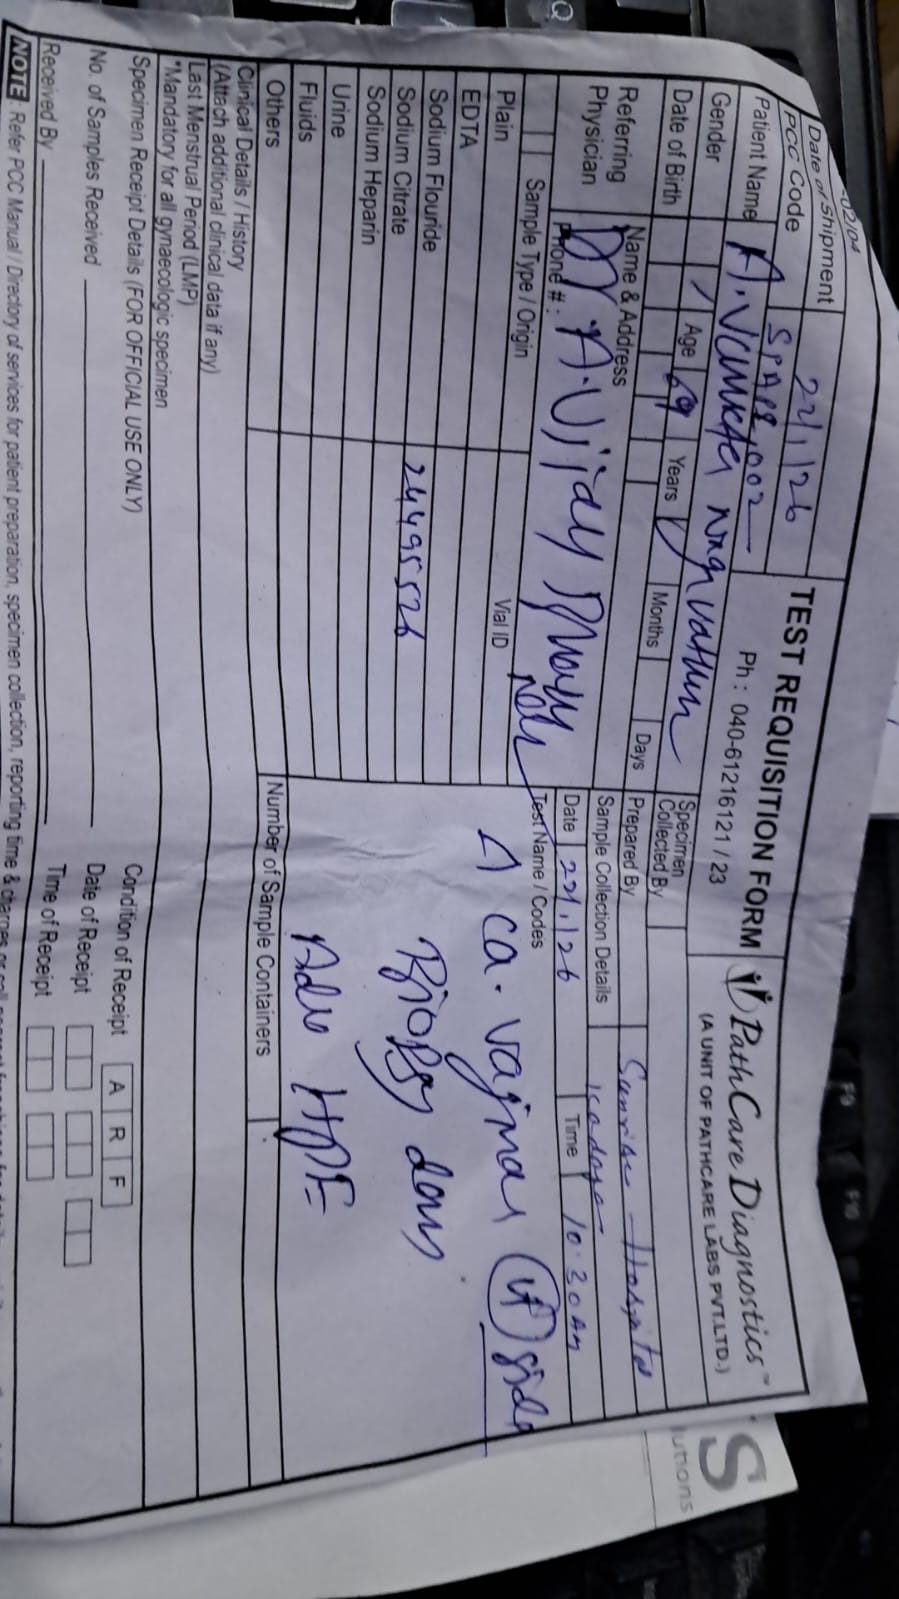 -02/04
Date of Shipment 22/1/26
PCC Code SPAP2,002
TEST REQUISITION FORM
Ph : 040-61216121 / 23
PathCare Diagnostics™
(A UNIT OF PATHCARE LABS PVT.LTD.)
Patient Name A. Venkata
Gender Age 69 Years Months Days
Date of Birth
Specimen Collected By
Prepared By Sunrise Hospital
Referring Physician Name & Address
Dr. A. Vijay
Phone # :
Sample Collection Details
Date 22/1/26 Time 10:30 Am
Sample Type / Origin Vial ID
Test Name / Codes
Plain
EDTA
Sodium Flouride
Sodium Citrate 24495526
Sodium Heparin
Urine
Fluids
Others
Δ ca. vaginal side
Biopsy done
Adv HPE
Number of Sample Containers
Clinical Details / History
(Attach additional clinical data if any)
Last Menstrual Period (LMP)
*Mandatory for all gynaecologic specimen
Specimen Receipt Details (FOR OFFICIAL USE ONLY)
Condition of Receipt A R F
No. of Samples Received
Date of Receipt
Received By
Time of Receipt
NOTE Refer PCC Manual / Directory of services for patient preparation, specimen collection, reporting time & charges or call
S
lutions
F9
F10
Q